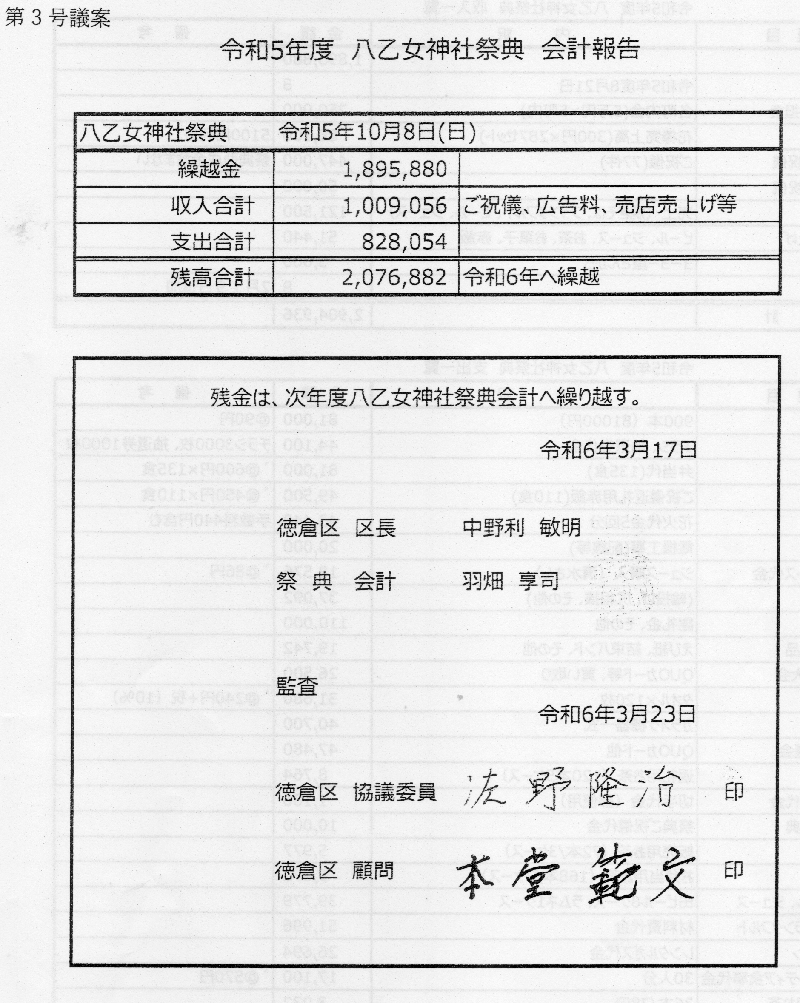 第3号議案
令和5年度 八乙女神社祭典 会計報告
八乙女神社祭典 令和5年10月8日(日)
繰越金 1,895,880
収入合計 1,009,056 ご祝儀、広告料、売店売上げ等
支出合計 828,054
残高合計 2,076,882 令和6年へ繰越
残金は、次年度八乙女神社祭典会計へ繰り越す。
令和6年3月17日
徳倉区 区長 中野利 敏明
祭典 会計 羽畑 享司
監査
令和6年3月23日
徳倉区 協議委員 佐野隆治 印
徳倉区 顧問 本堂範文 印